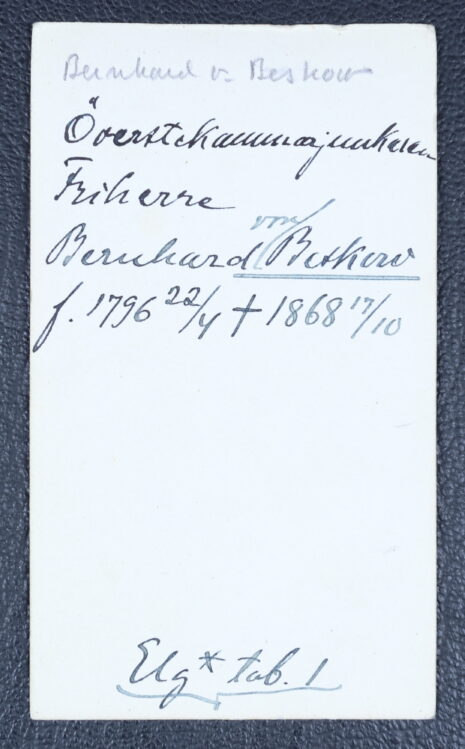 Bernhard v. Beskow
Överstekammarjunkaren
Friherre
Bernhard von Beskow
f. 1796 22/4 † 1868 17/10
Elg* tab. 1